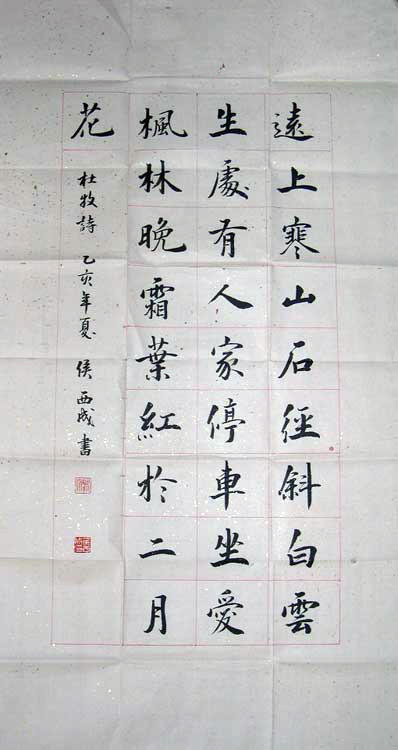 遠上寒山石徑斜白雲
生處有人家停車坐愛
楓林晚霜葉紅於二月
花
杜牧詩 乙亥年夏 侯西成書